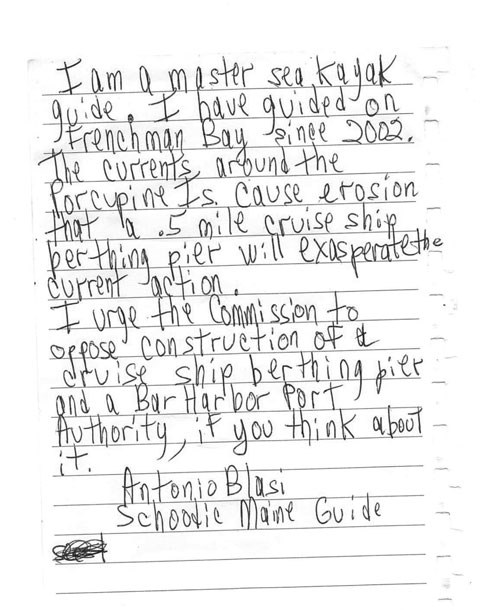 I am a master sea kayak
guide. I have guided on
Frenchman Bay since 2002.
The currents around the
Porcupine Is. cause erosion
that a .5 mile cruise ship
berthing pier will exasperate the
current action.
I urge the Commission to
oppose construction of a
cruise ship berthing pier
and a Bar Harbor Port
Authority, if you think about
it.
Antonio Blasi
Schoodic Maine Guide